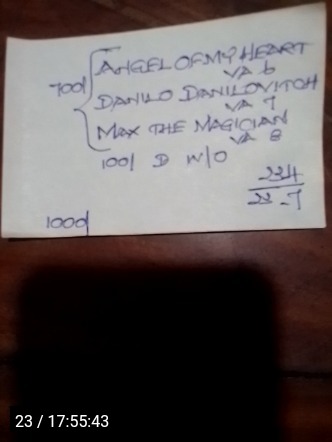 ANGEL OF MY HEART
VA 6
700/
DANILO DANILOVITCH
VA 7
MAX THE MAGICIAN
VA 8
100/ D W/O
234
23-7
1000/
23 / 17:55:43